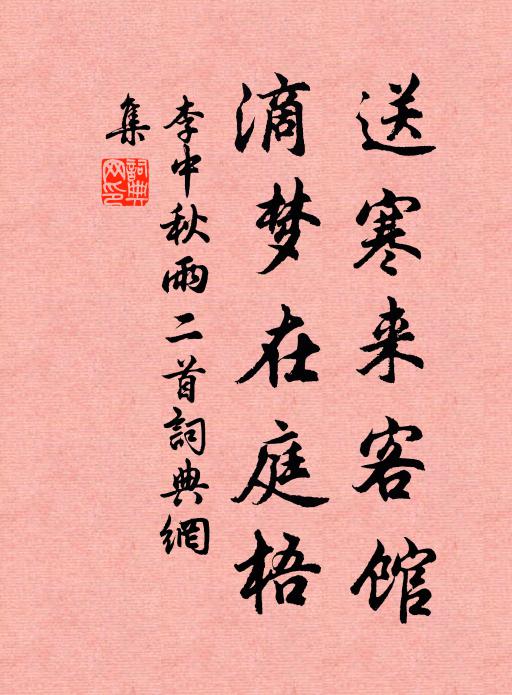 送寒来客馆
滴梦在庭梧
李中秋雨二首詞典網
集
詞典網印